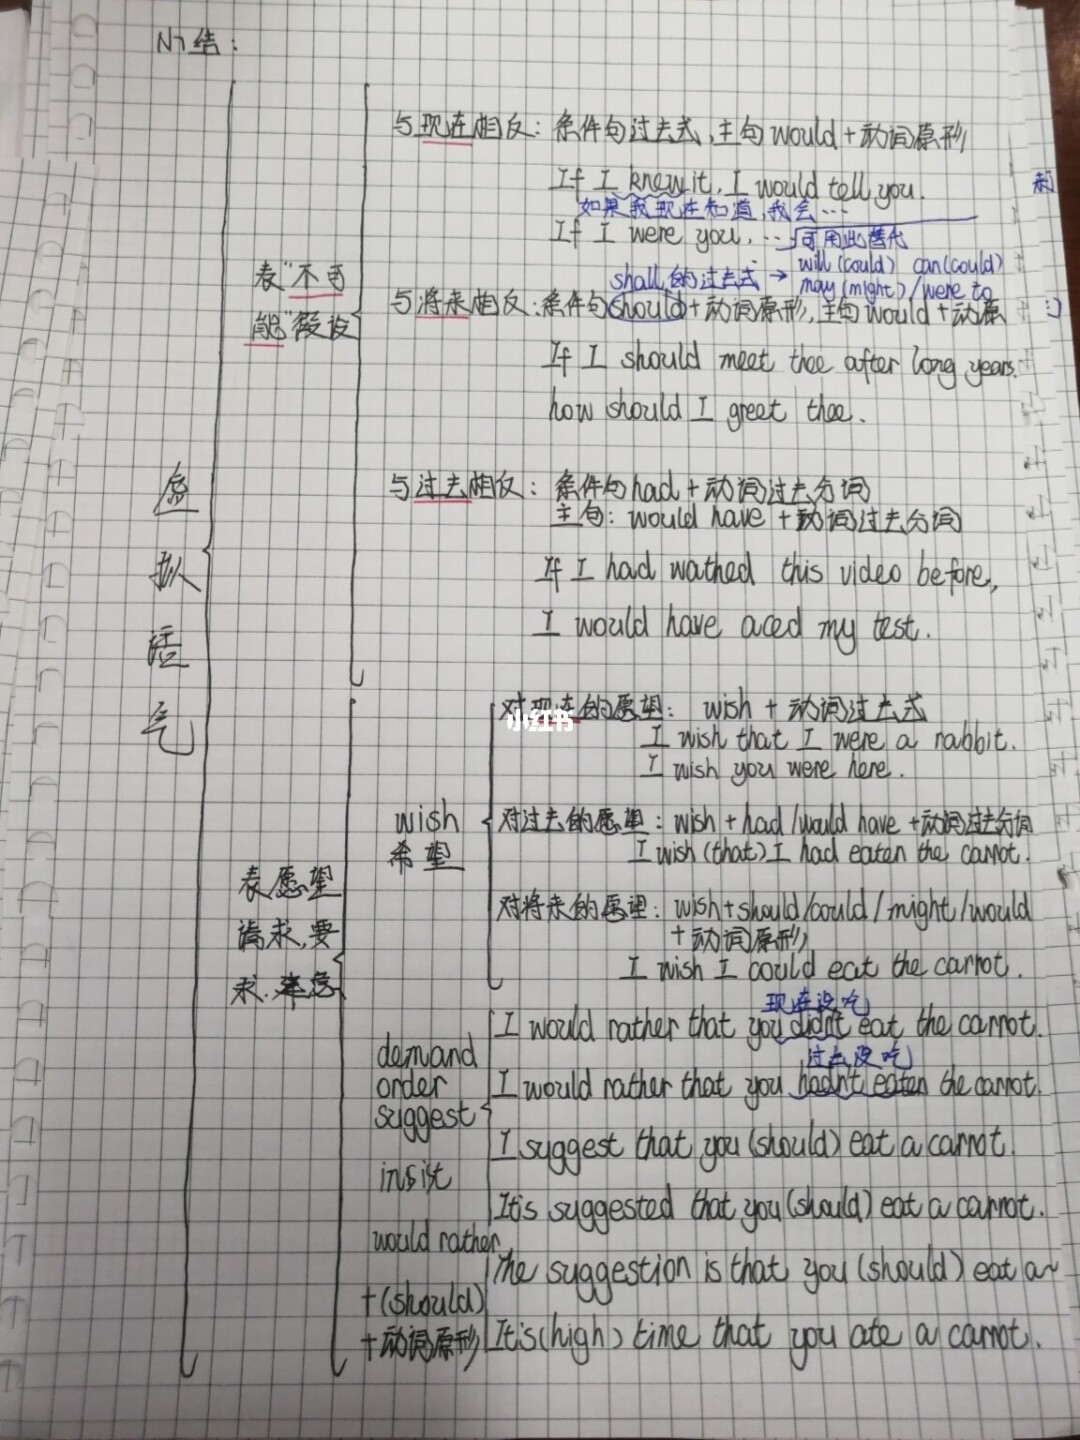 小结:
与现在相反: 条件句过去式,主句would+动词原形
If I knew it, I would tell you.
如果我现在知道,我会…
If I were you, … 可用此替代
shall的过去式 → will (could) can (could)
may (might) / were to
表"不可能"假设
与将来相反:条件句should+动词原形,主句would+动原
If I should meet thee after long years.
how should I greet thee.
与过去相反: 条件句had+动词过去分词
主句: would have +动词过去分词
If I had wathed this video before,
I would have aced my test.
虚拟语气
对现在的愿望: wish + 动词过去式
小红书
I wish that I were a rabbit.
I wish you were here.
wish
希望
对过去的愿望: wish + had /would have +动词过去分词
I wish (that) I had eaten the carrot.
表愿望
请求,要
求.
对将来的愿望: wish+should/could/might/would
+动词原形
I wish I could eat the carrot.
现在没吃
I would rather that you didn't eat the carrot.
过去没吃
I would rather that you hadn't eaten the carrot.
demand
order
suggest
insist
would rather
+(should)
+动词原形
I suggest that you (should) eat a carrot.
It's suggested that you (should) eat a carrot.
The suggestion is that you (should) eat a~
It is (high) time that you ate a carrot.